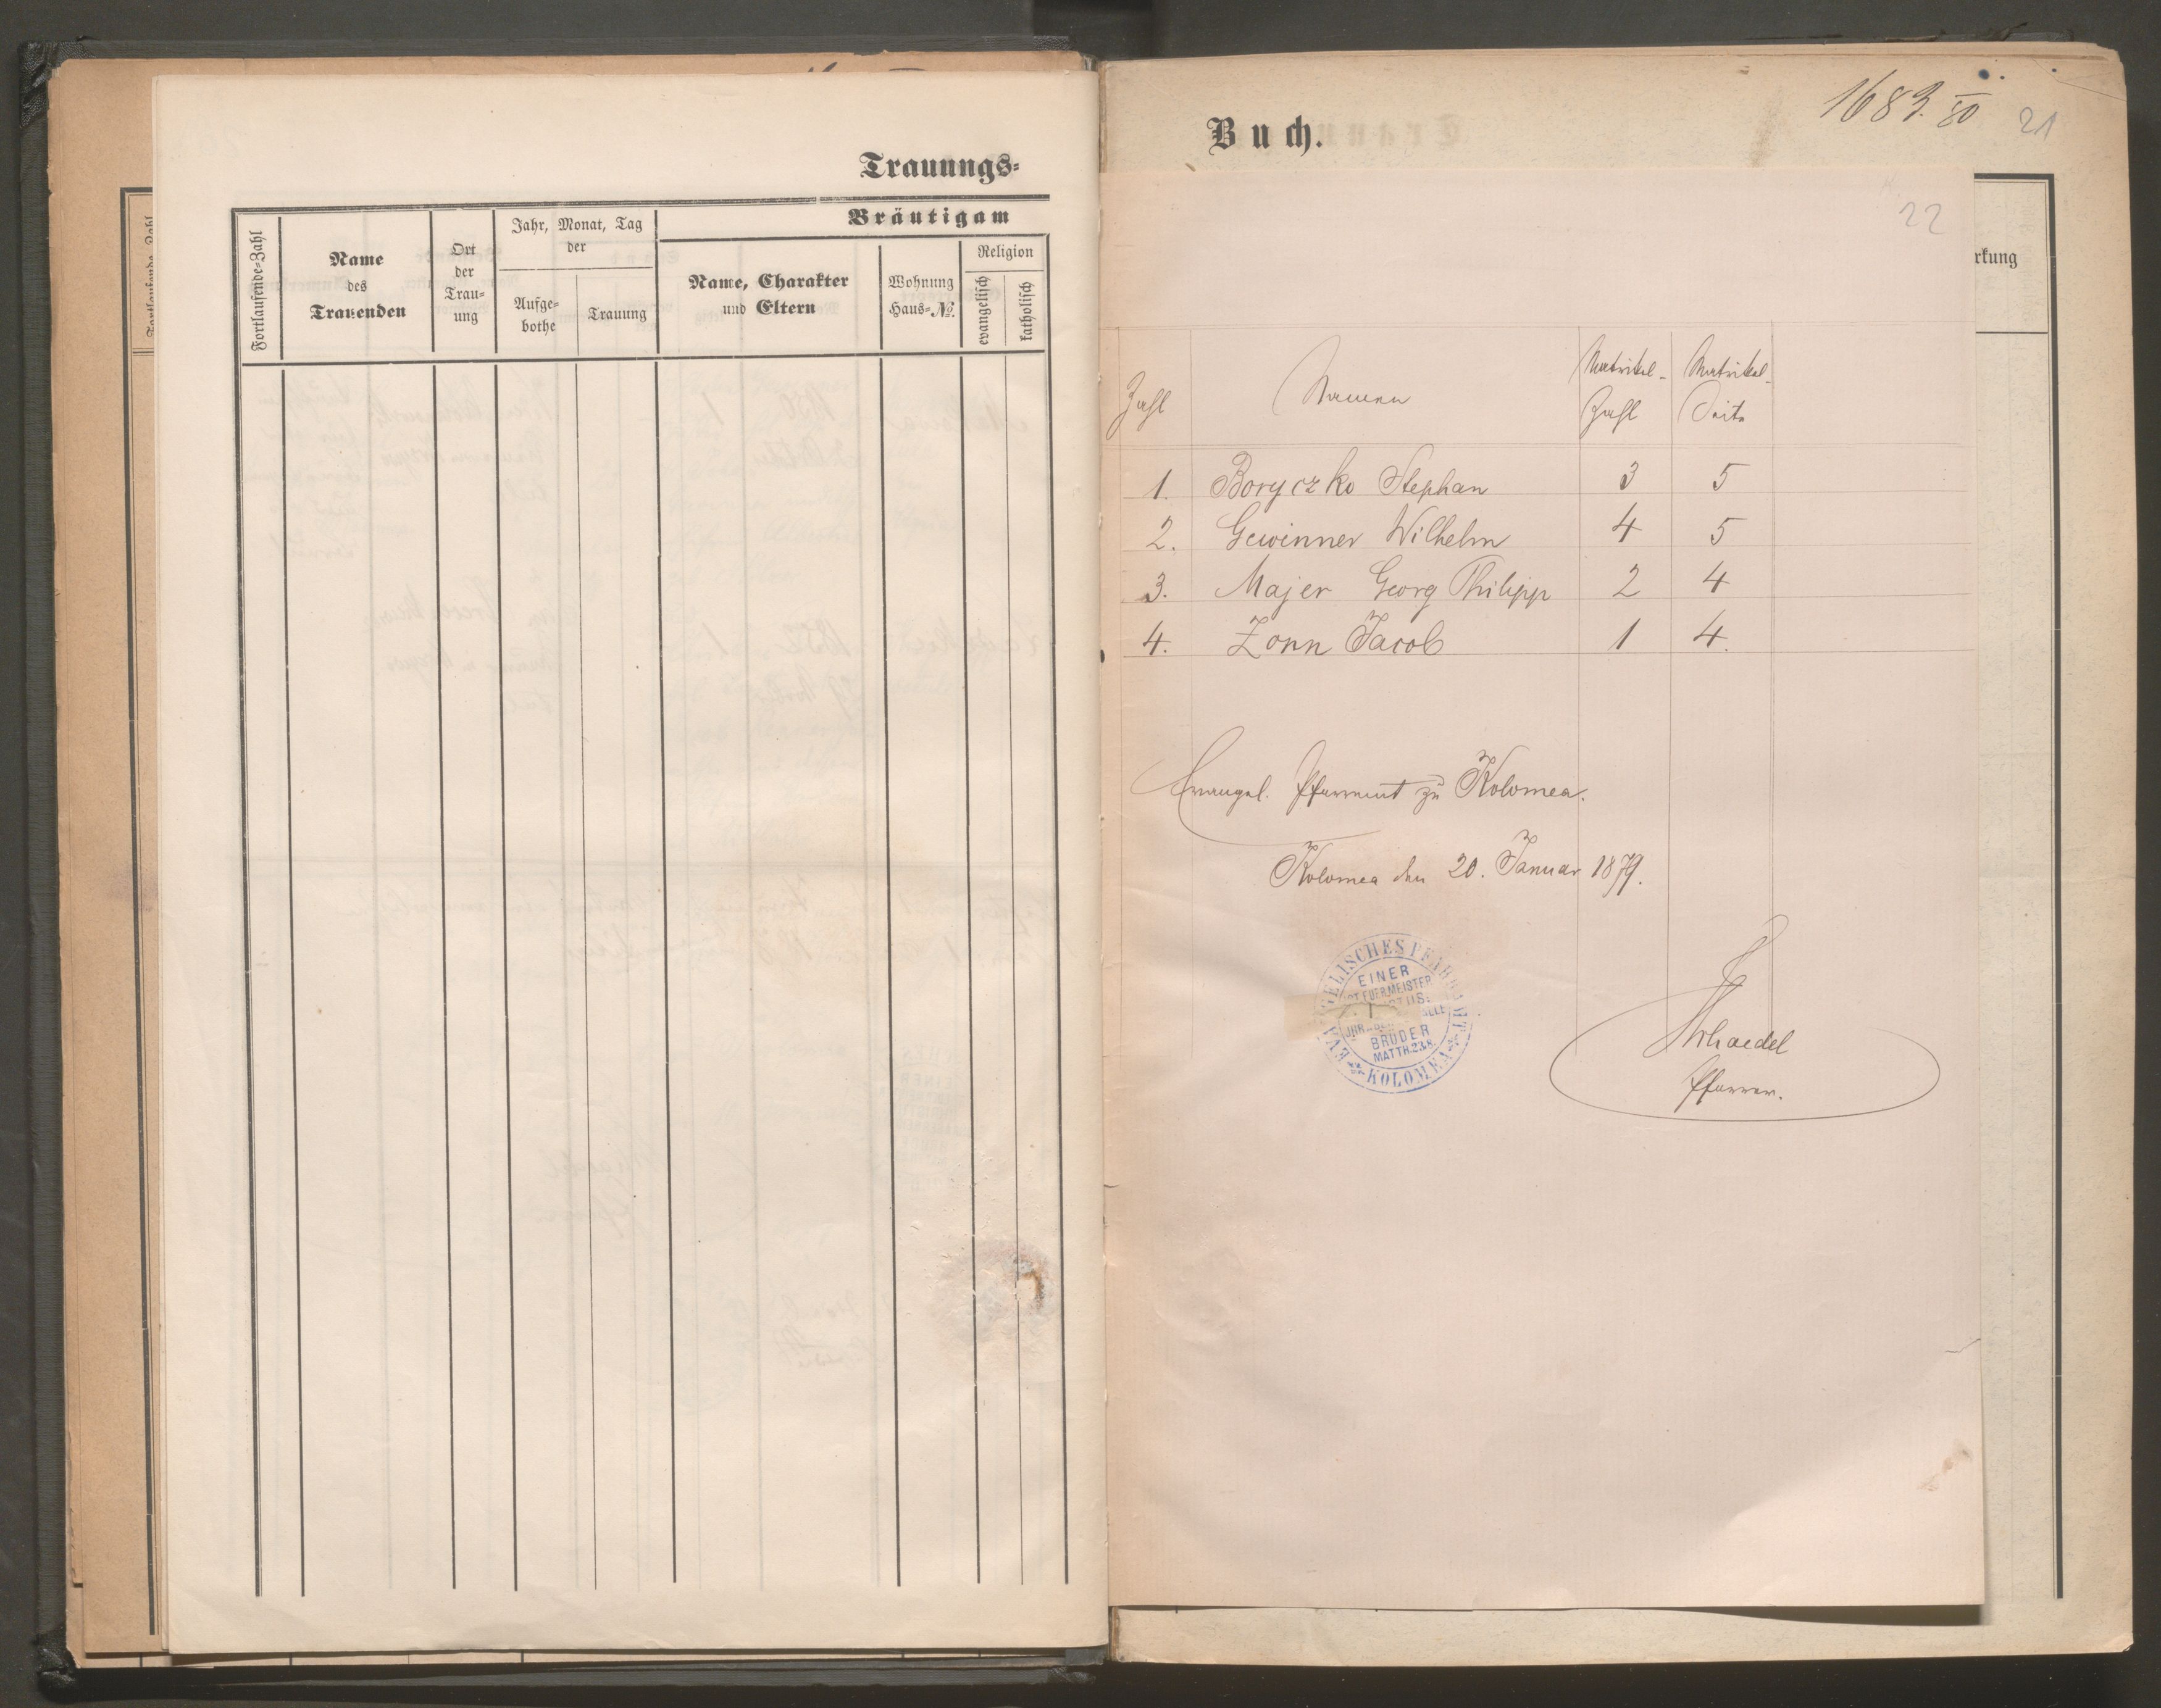 Trauungs-
Fortlaufende-Zahl
Name
des
Trauenden
Ort
der
Trau-
ung
Jahr, Monat, Tag
der
Aufge-
bothe
Trauung
Bräutigam
Name, Charakter
und Eltern
Wohnung
Haus-№.
Religion
evangelisch
katholisch
Buch.
1683. 80
21
rkung
22
Zahl
Namen
Matrikel-
Zahl
Matrikel-
Seite
1. Boryczko Stephan 3 5
2. Gewinner Wilhelm 4 5
3. Majer Georg Philipp 2 4
4. Zorn Jacob 1 4.
Evangel. Pfarramt zu Kolomea.
Kolomea den 20. Januar 1879.
EVANGELISCHES PFARRAMT
KOLOMEA
EINER
IST EUER MEISTER
IHR ALLE
BRÜDER
MATTH.23.8.
Pfarrer.